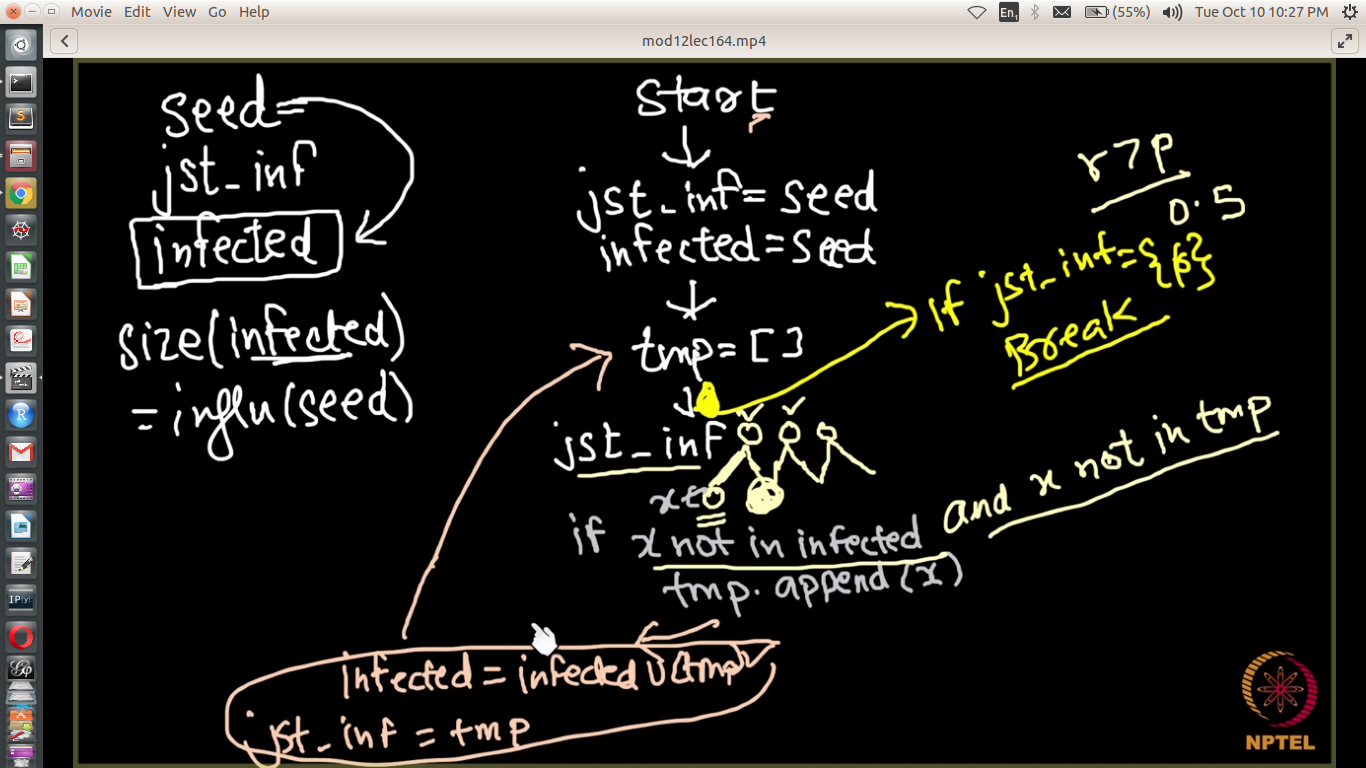 Movie Edit View Go Help
En1 (55%) Tue Oct 10 10:27 PM
mod12lec164.mp4
seed=
jst_inf
infected
size(infected)
=influ(seed)
Start
jst_inf=seed
infected=seed
tmp=[]
jst_inf
x
if x not in infected
and x not in tmp
tmp.append(x)
infected = infected U (tmp)
jst_inf = tmp
r>p
0.5
If jst_inf={ϕ}
Break
NPTEL